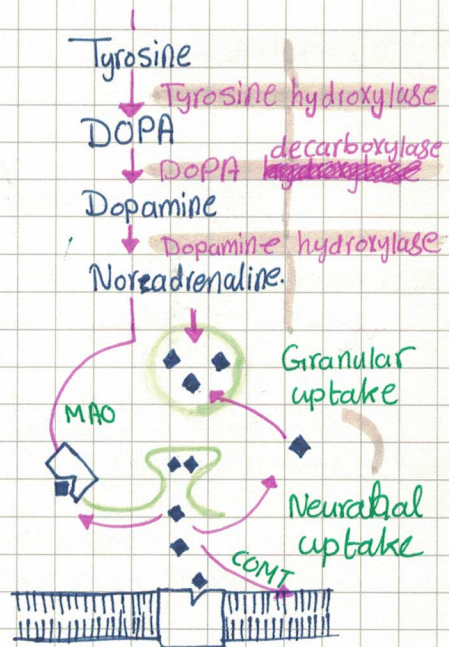 Tyrosine
Tyrosine hydroxylase
DOPA
decarboxylase
DOPA
Dopamine
Dopamine hydroxylase
Noradrenaline.
Granular
uptake
MAO
uptake
COMT